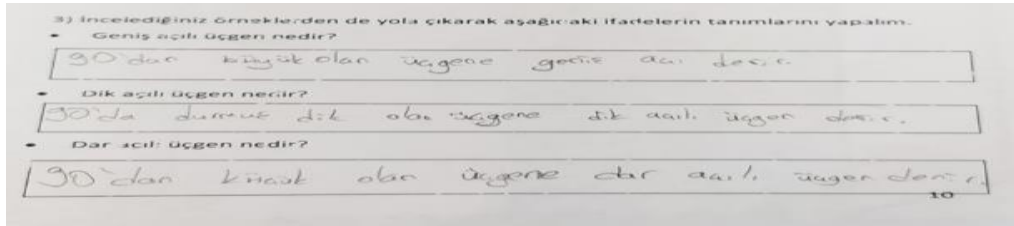 3) İncelediğiniz örneklerden de yola çıkarak aşağıdaki ifadelerin tanımlarını yapalım.
• Geniş açılı üçgen nedir?
90'dan büyük olan üçgene geniş açı denir.
• Dik açılı üçgen nedir?
90'da durmuş dik olan üçgene dik açılı üçgen denir.
• Dar açılı üçgen nedir?
90'dan küçük olan üçgene dar açılı üçgen denir.
10